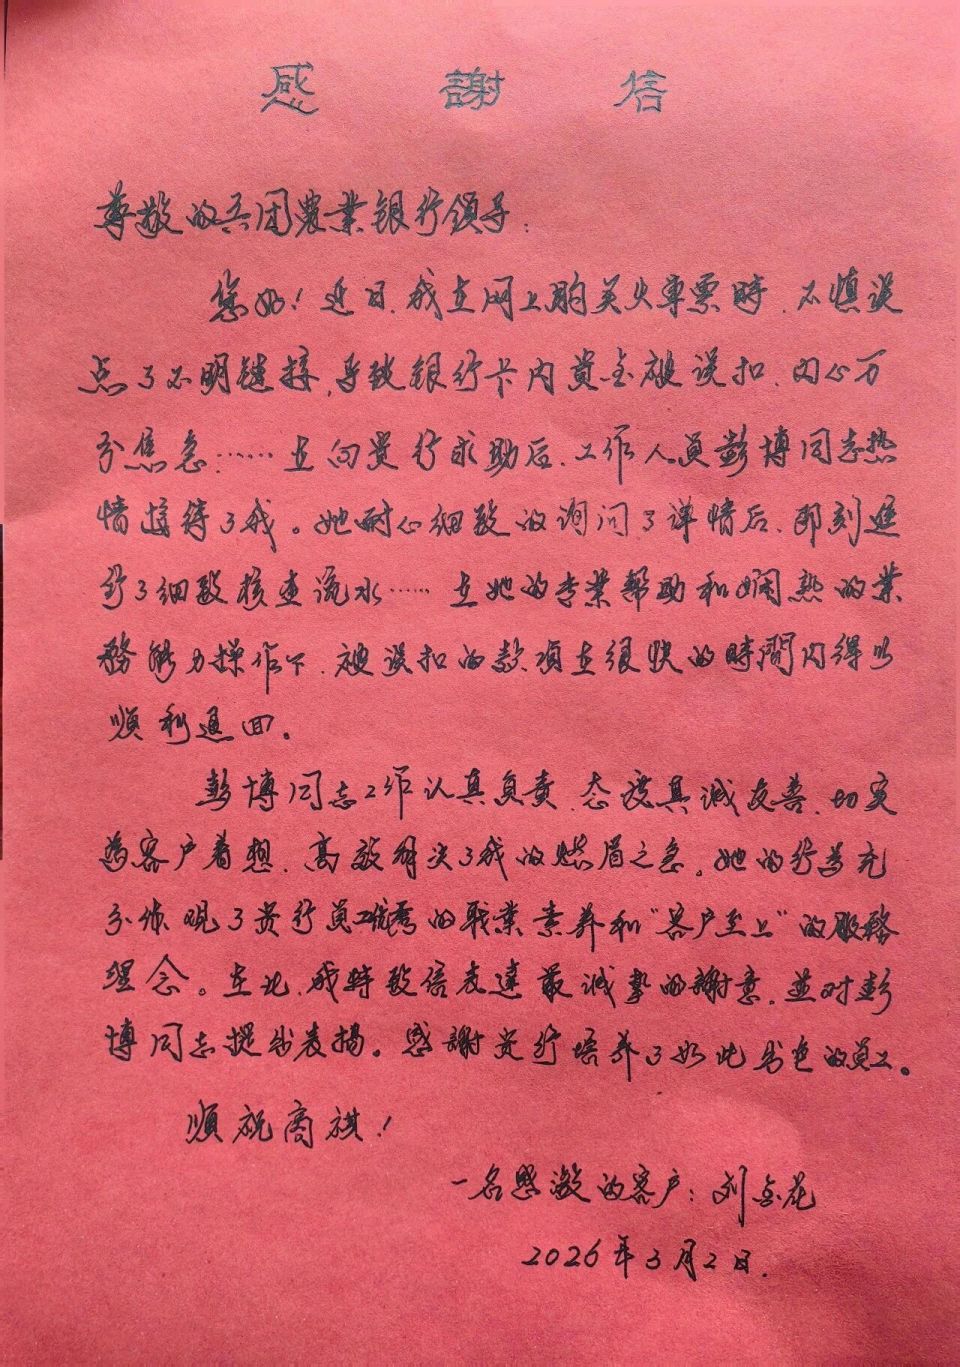 感謝信
尊敬的兵团農業銀行領导：
您好！近日，我在网上购买火車票時，不慎误
点了不明链接，导致銀行卡内資金被误扣，内心万
分焦急……在向贵行求助后，工作人員彭博同志热
情接待了我。她耐心細致的询问了详情后，即刻進
行了細致核查流水……在她的专業帮助和娴熟的業
務能力操作下，被误扣的款項在很快的時間内得以
順利退回。
彭博同志工作认真負责，态度真诚友善，切实
為客户着想，高效解决了我的燃眉之急。她的行為充
分体现了贵行員工優秀的職業素养和“客户至上”的服務
理念。在此，我特致信表達最诚挚的謝意，並对彭
博同志提出表揚。感謝贵行培养了如此出色的員工。
順祝商祺！
一名感激的客户：刘金花
2026年3月2日.